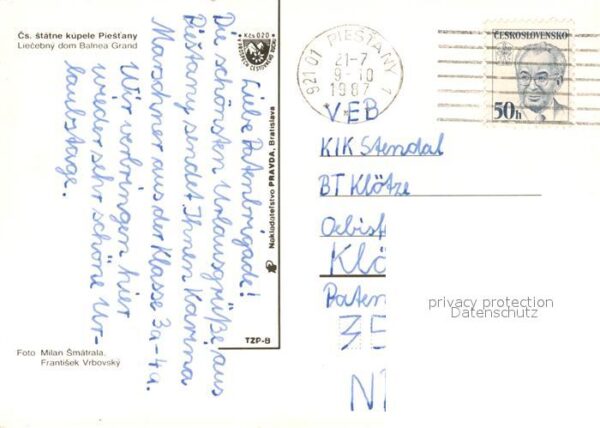 Čs. štátne kúpele Piešťany
Liečebný dom Balnea Grand
Liebe Patenbrigade!
Die schönsten Urlausgrüße aus
Pieštany sendet Ihnen Karina
Marschner aus der Klasse 3a-4a.
Wir verbringen hier
wieder sehr schöne Ur-
laubstage.
Foto Milan Šmátrala,
František Vrbovský
Kčs 0,20
Nakladateľstvo PRAVDA, Bratislava
TZP-8
921 01 PIEŠŤANY 1
21-7
9-10
1987
ČESKOSLOVENSKO
50h
VEB
KIK Stendal
BT Klötze
Klö
Paten
privacy protection
Datenschutz
35